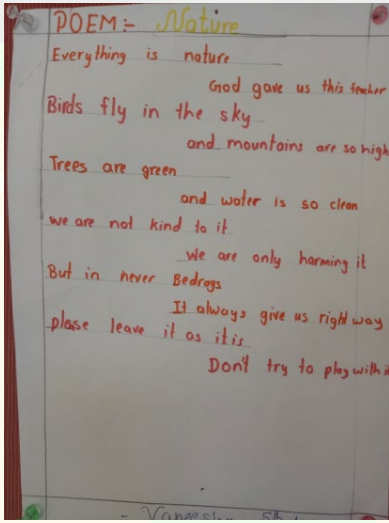 POEM:- Nature
Everything is nature
God gave us this teacher
Birds fly in the sky
and mountains are so high
Trees are green
and water is so clean
we are not kind to it
We are only harming it
But in never Bedrays
It always give us right way
please leave it as it is
Don't try to play with it